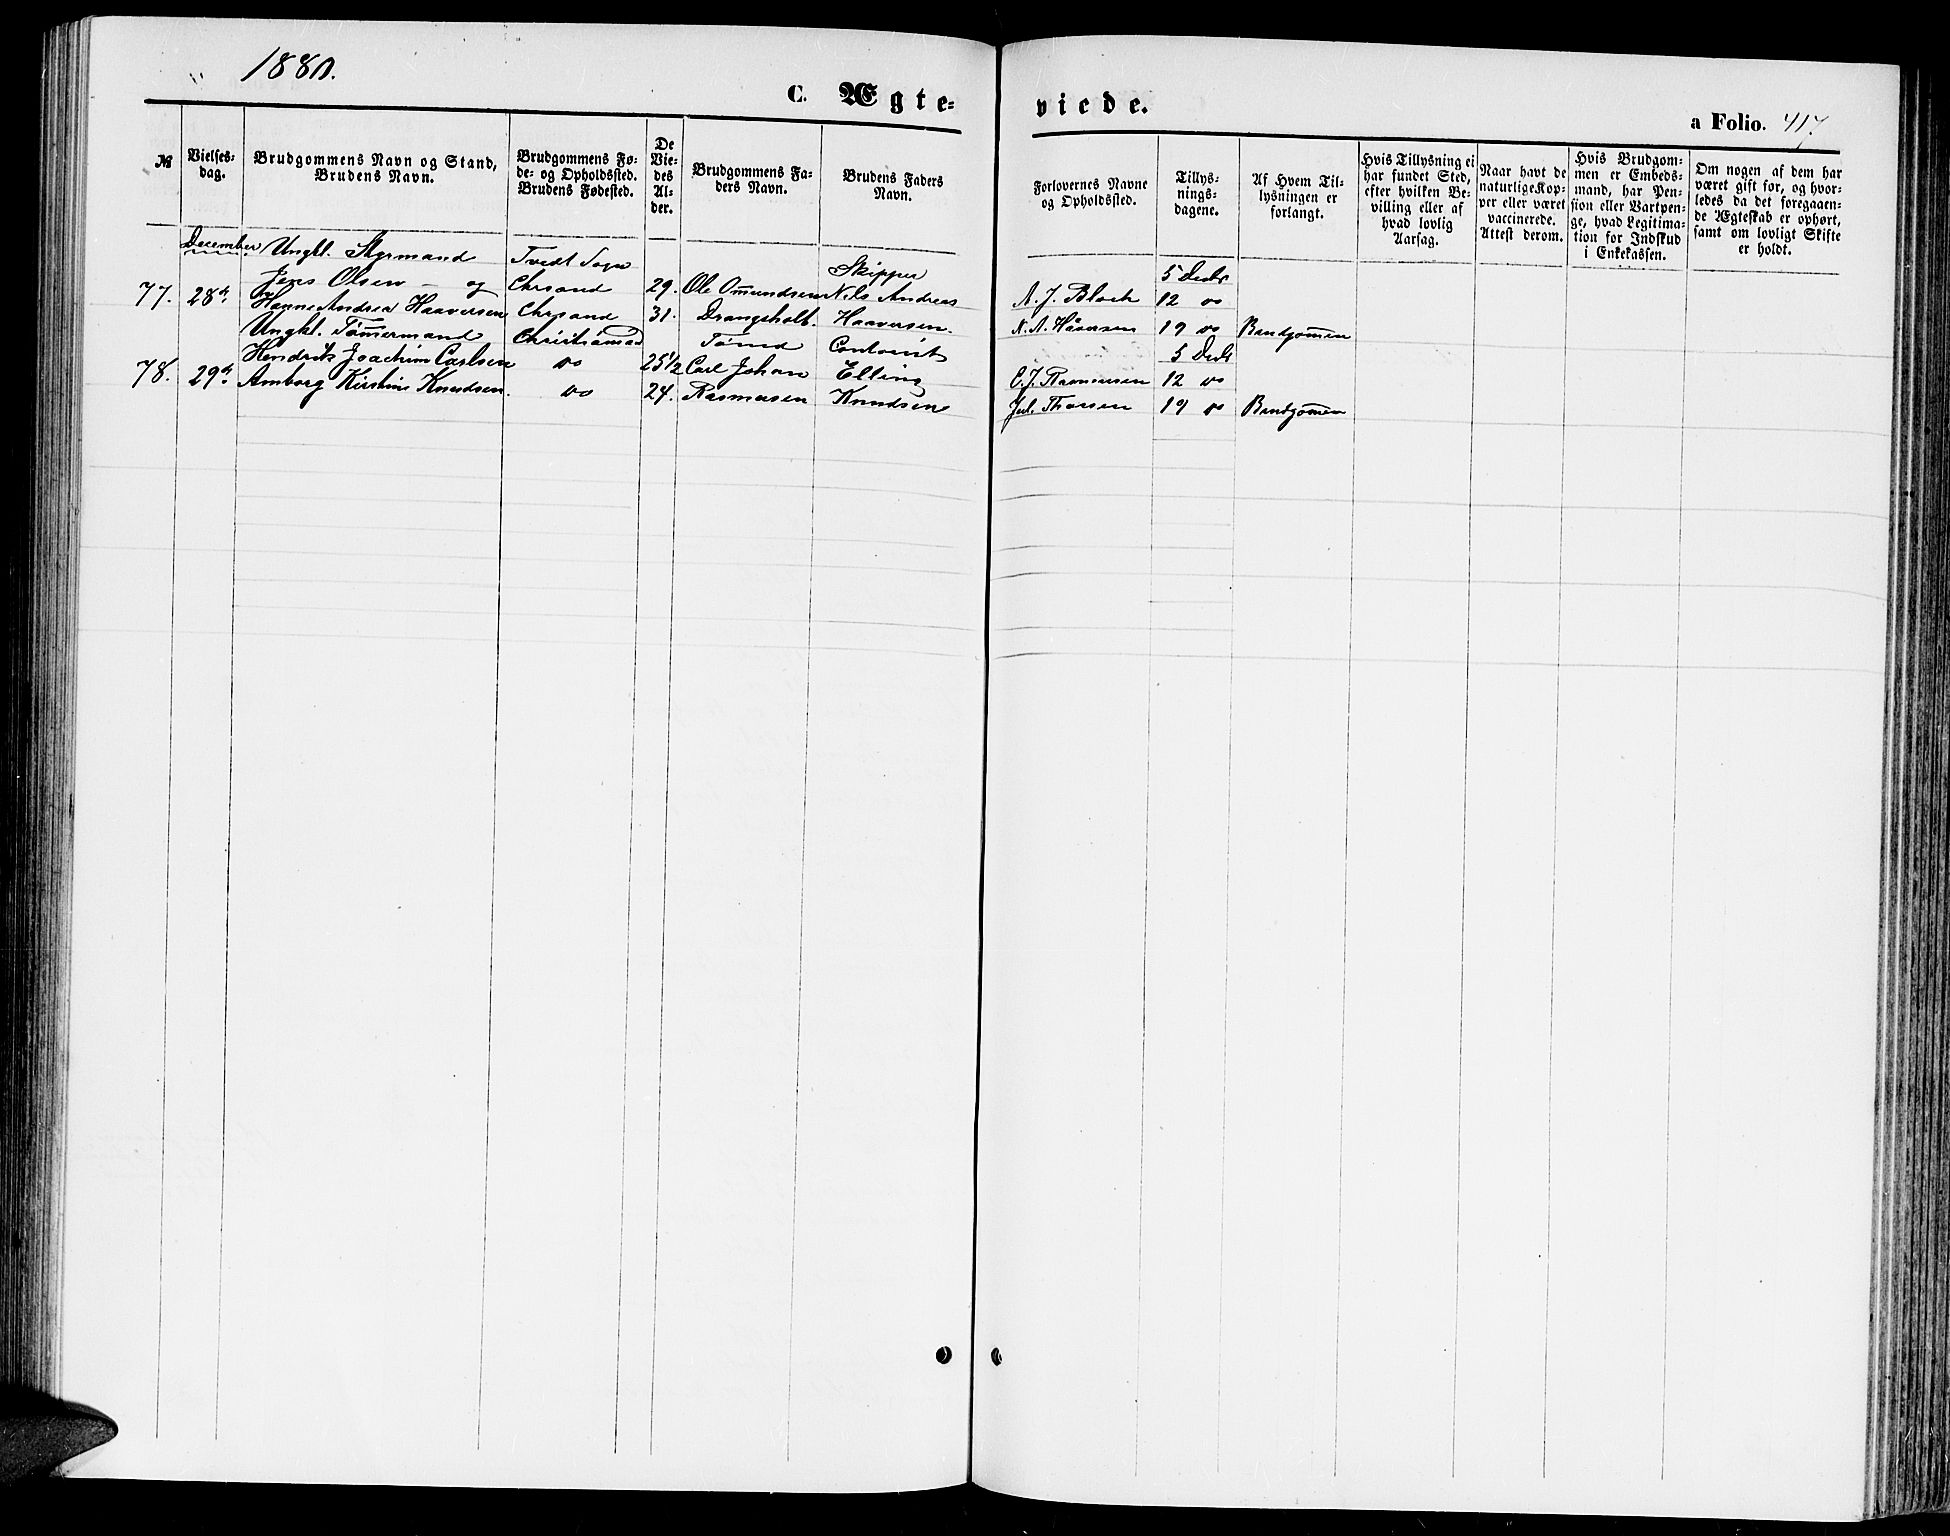 1880.
C. Ægte=
viede.
a Folio. 417
№
Vielses-
dag.
Brudgommens Navn og Stand,
Brudens Navn.
Brudgommens Fø-
de- og Opholdssted.
Brudens Fødested.
De
Vie-
des
Al-
der.
Brudgommens Fa-
ders Navn.
Brudens Faders
Navn.
Forlovernes Navne
og Opholdssted.
Tillys-
nings-
dagene.
Af Hvem Til-
lysningen er
forlangt.
Hvis Tillysning ei
har fundet Sted,
efter hvilken Be-
villing eller af
hvad lovlig
Aarsag.
Naar havt de
naturlige Kop-
per eller været
vaccinerede.
Attest derom.
Hvis Brudgom-
men er Embeds-
mand, har Pen-
sion eller Vartpen-
ge, hvad Legitima-
tion for Indskud
i Enkekassen.
Om nogen af dem har
været gift før, og hvor-
ledes da det foregaaen-
de Ægteskab er ophørt,
samt om lovligt Skifte
er holdt.
December
77.
28de
Ungkl. Styrmand
Jens Olsen — og
Hanne Andrea Haaversen
Tvedt Sogn
Chrsand
Chrsand
29.
31.
Ole Omundsen
Drangsholt.
Skipper
Nils Andreas
Haaversen.
A. J. Bloch
N. A. Håversen
5 Decbr
12 do
19 do
Brudgommen
78.
29de
Ungkl. Tømmermand
Hendrik Joachim Carlsen
Amborg Kirstine Knudsen.
Christiansand
do
do
25 1/2
24.
Tømd
Carl Johan
Rasmusen
Contorist
Elling
Knudsen
C. J. Rasmussen
Jul. Thorsen
5 Decb
12 do
19 do
Brudgommen